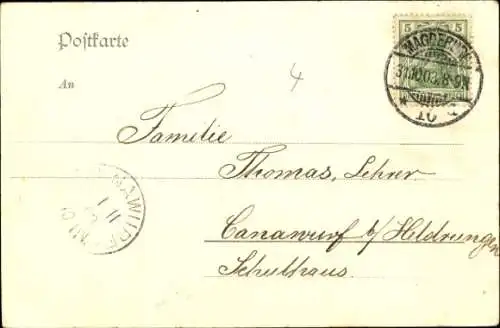 Postkarte
5 5
MAGDEBURG
31.10.03.8-9N.
* 10 c
An
4
Familie
Thomas, Lehrer
Canawurf b/Heldrungen
Schulhaus.
1 11